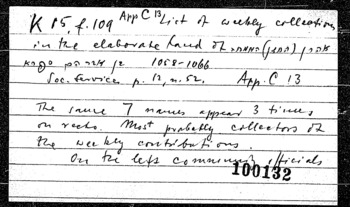 K 15, f. 109 App C 13 List of weekly collections
in the elaborate hand of
1058-1066
Soc. Services p. 13, n. 52. App. C 13
The same 7 names appear 3 times
on recto. Most probably collectors of
the weekly contributions.
On the left communal officials
100132